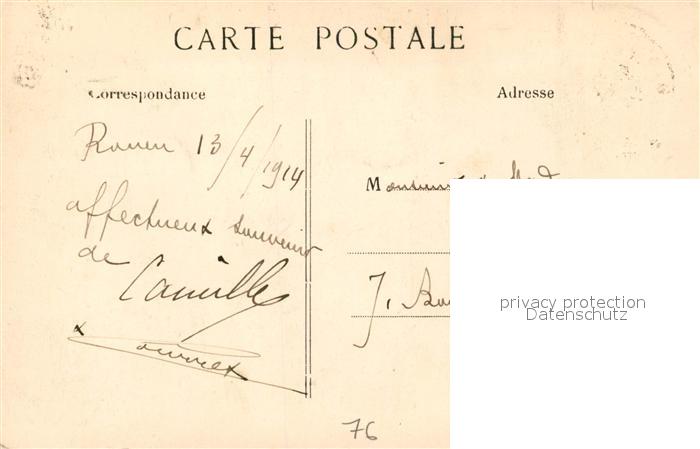 CARTE POSTALE
Correspondance
Adresse
Rouen 13/4/1914
affectueux souvenir
de
Camille
M
J.
privacy protection
Datenschutz
76